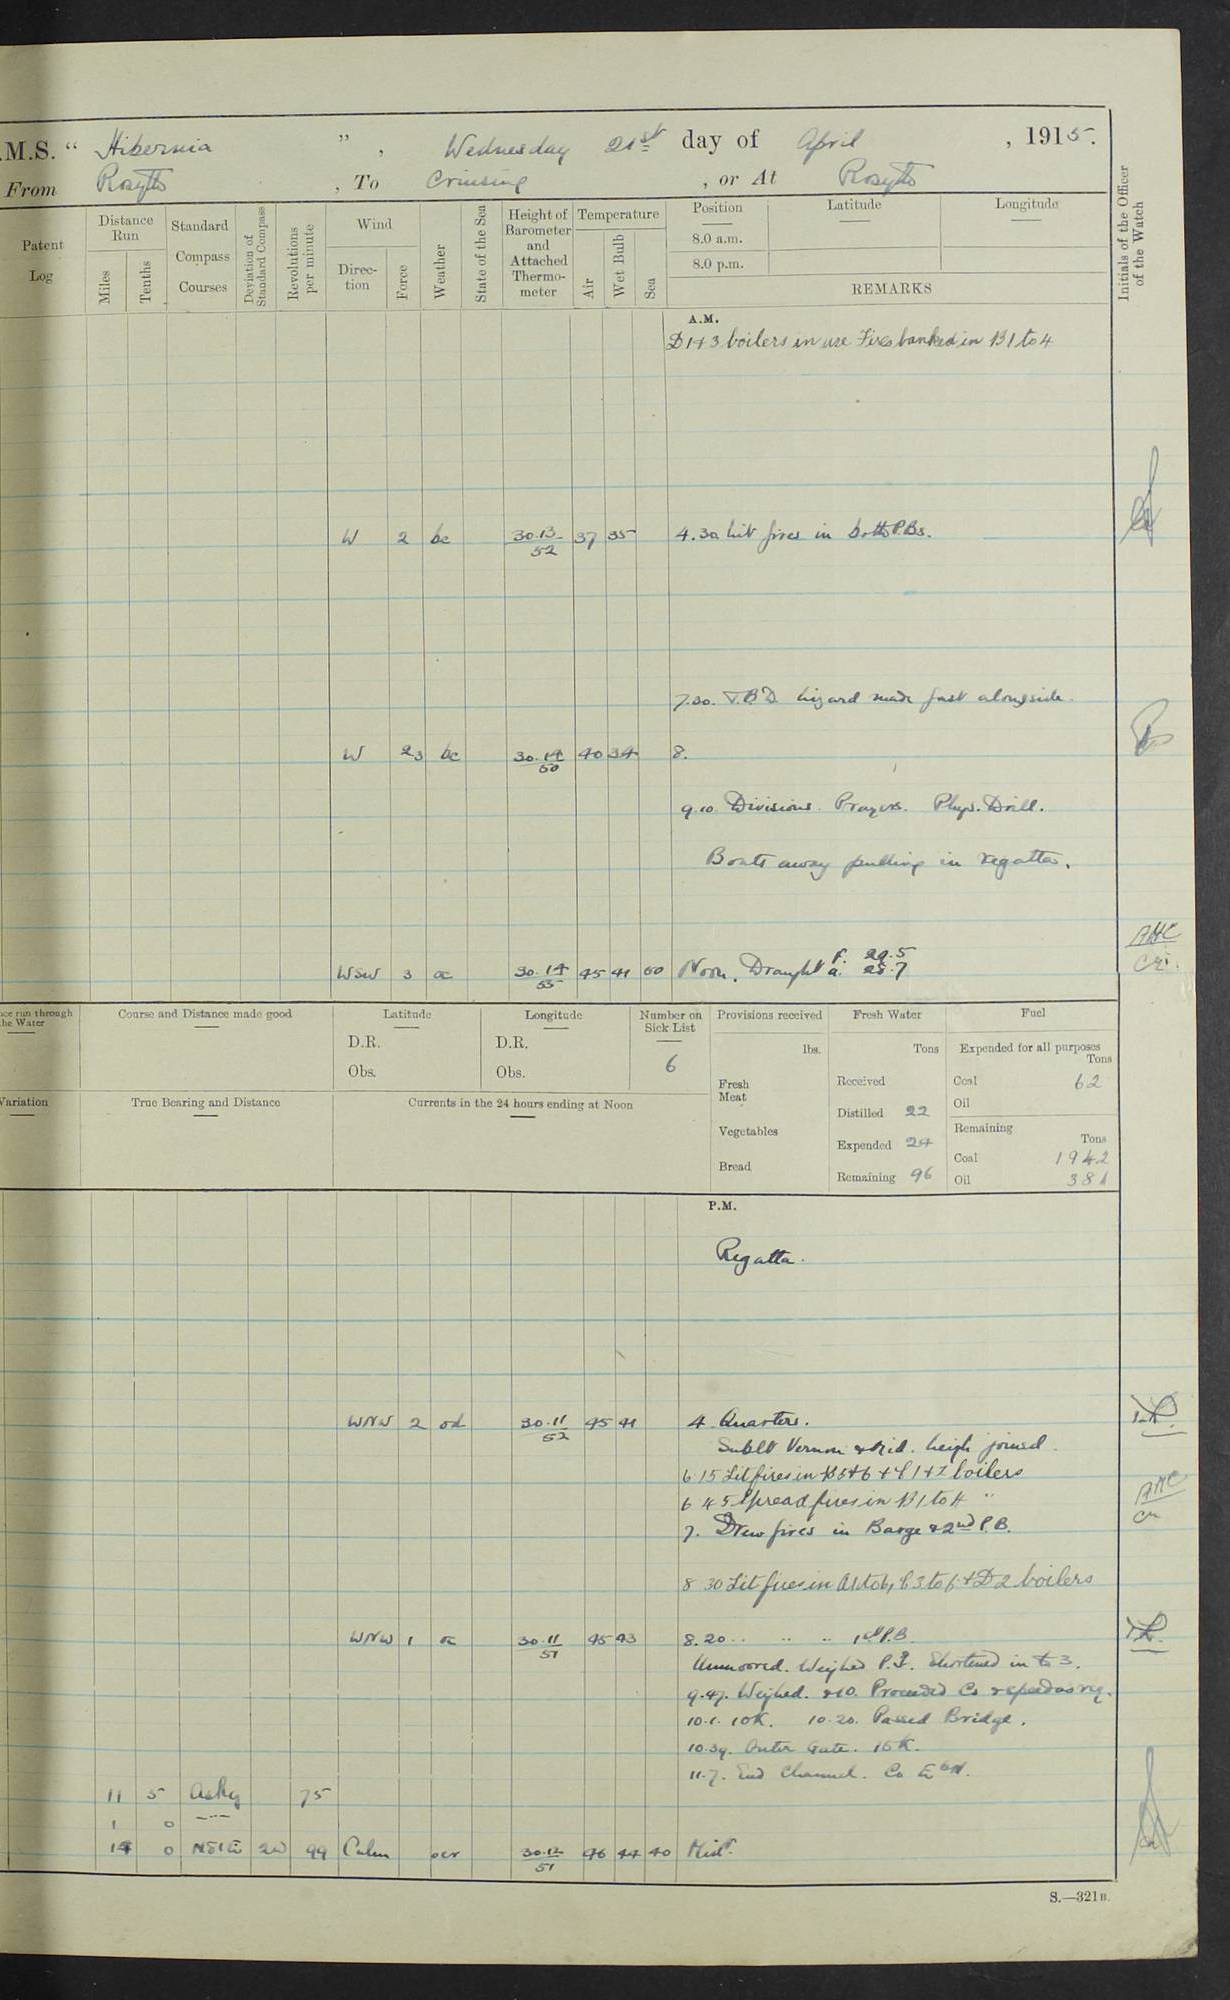 .M.S. " Hibernia ", Wednesday 21st day of April, 1915.
From Rosyth, To Cruising, or At Rosyth
Patent Log
Distance Run
Miles
Tenths
Standard Compass Courses
Deviation of Standard Compass
Revolutions per minute
Wind
Direction
Force
Weather
State of the Sea
Height of Barometer and Attached Thermometer
Temperature
Air
Wet Bulb
Sea
Position Latitude Longitude
8.0 a.m.
8.0 p.m.
REMARKS
Initials of the Officer of the Watch
A.M.
D 1+3 boilers in use Fires banked in B1 to 4
W 2 bc 30.13/52 37 35 4.30 Lit fires in both P.Bs.
7.30. T.B.D. Lizard made fast alongside.
W 23 bc 30.14/50 40 34 8.
9.10. Divisions. Prayers. Phys. Drill.
Boats away pulling in regatta.
WSW 3 oc 30.14/55 45 41 Noon. Draught f. 29.5
a. 28.7
ce run through the Water
Course and Distance made good
Latitude
D.R.
Obs.
Longitude
D.R.
Obs.
Number on Sick List
6
Provisions received
lbs.
Fresh Meat
Vegetables
Bread
Fresh Water
Tons
Received
Distilled 22
Expended 24
Remaining 96
Fuel
Expended for all purposes
Tons
Coal 62
Oil
Remaining
Tons
Coal 1942
Oil 381
Variation
True Bearing and Distance
Currents in the 24 hours ending at Noon
P.M.
Regatta.
WNW 2 od 30.11/52 45 41 4 Quarters.
Sublt Vernon & Mid. Leigh joined.
6.15 Lit fires in B5+6 + C1+2 boilers
6 45 Spread fires in B1 to 4 "
7. Drew fires in Barge & 2nd P.B.
8 30 Lit fires in A1 to 6, C3 to 6 + D2 boilers
WNW 1 oc 30.11/51 45 43 8.20 .. .. .. 1st P.B.
Unmoored. Weighed P.A. Shortened in to 3.
9.47. Weighed. &10. Proceeded Co & speed as req.
10.1. 10K. 10.20. Passed Bridge.
10.39. Outer Gate. 15K.
11.7. End Channel. Co E by N.
11 5 As Req 75
1 0
14 0 N51E 99 Calm 30.12/51 46 44 40 Mist.
S.—321B.